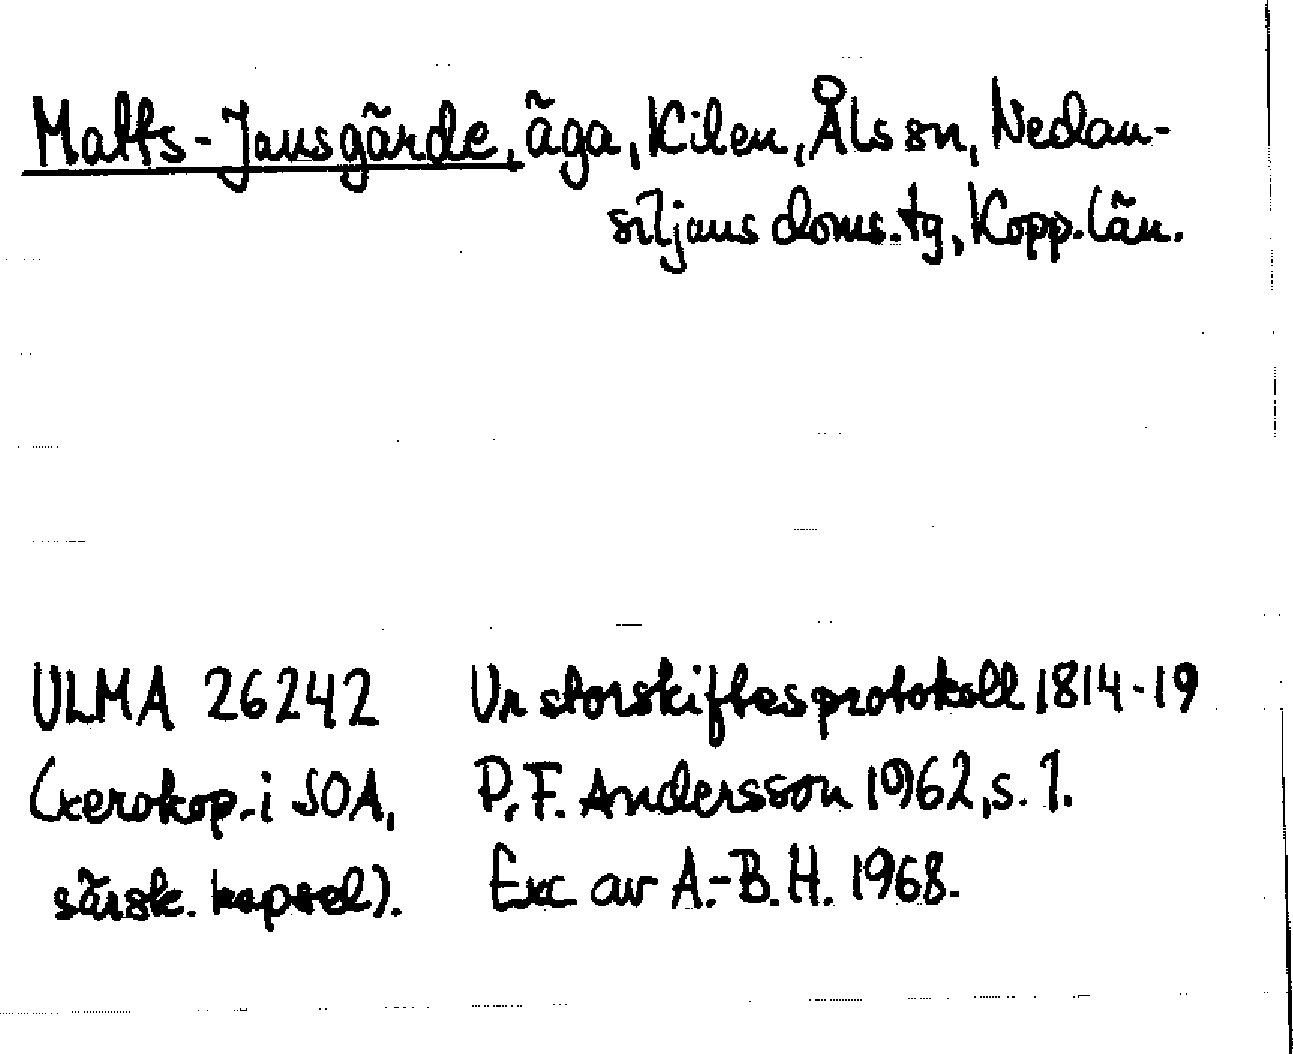 Matts-Jansgärde, äga, Kilen, Åls sn, Nedan-
siljans doms.tg, Kopp.län.
ULMA 26242 Ur storskiftesprotokoll 1814-19
(xerokop. i SOA, P.F. Andersson 1962, s. 1.
särsk. kapsel). Exc av A.-B.H. 1968.